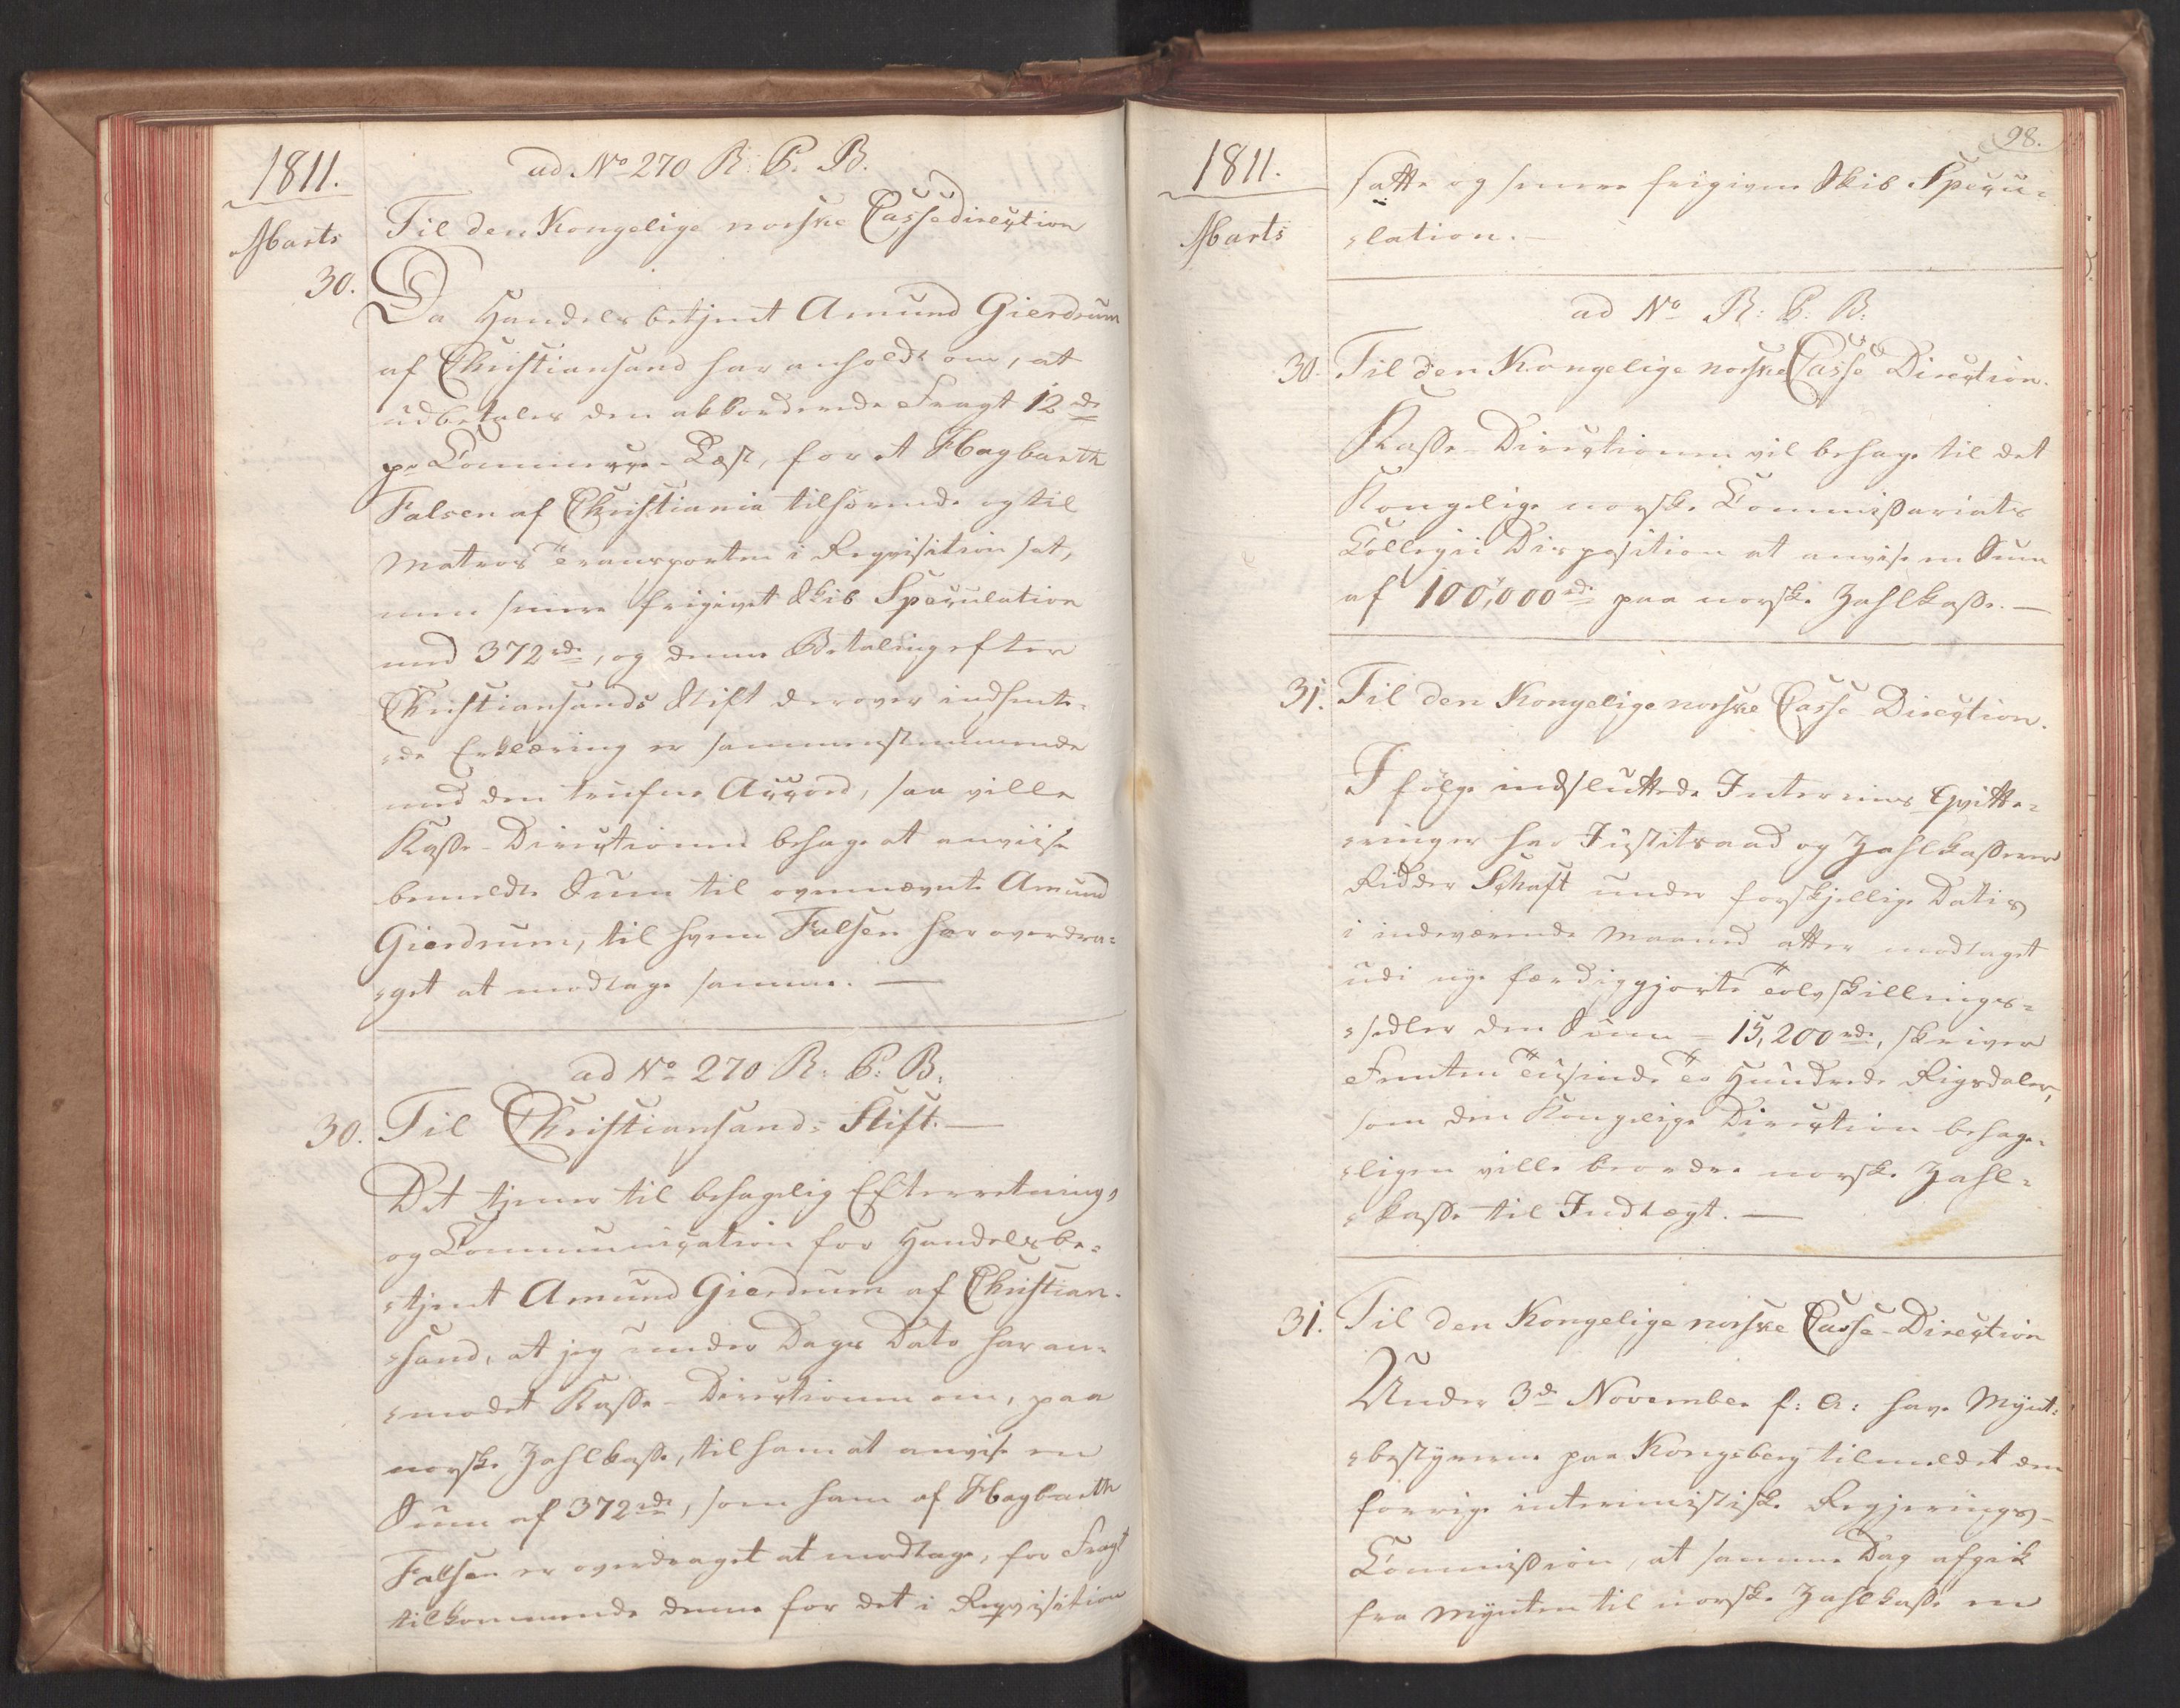 1811.
Marts
ad No 270 R: C. B.
Til den Kongelige norske Cassedirection
30.
Da Handelsbetjent Amund Gierdrum
af Christiansand har anholdt om, at
udbetales den akkorderede Fragt 12 rd
pr Commerce-Læst, for et Hagbarth
Falsen af Christiania tilhørende og til
Matros Transporten i Reqvisition sat,
men senere frigivet Skib Speculation
med 372 rd, og denne Betaling efter
Christiansands Stift derover indhente-
-de Erklæring er sammenstemmende
med den trufne Accord, saa ville
Kasse-Directionen behage at anviise
bemeldte Sum til ovennævnte Amund
Gierdrum, til hvem Falsen har overdra-
-get at modtage samme. —
ad No 270 R: C: B:
30. Til Christiansand: Stift. —
Det tjener til behagelig Efterretning,
og Communication for Handelsbe-
-tjent Amund Gierdrum af Christian-
-sand, at jeg under Dags Dato har an-
-modet Kasse-Directionen om, paa
norske Zahlkasse, til ham at anvise en
Sum af 372 rd, som ham af Hagbarth
Falsen er overdraget at modtage, for Fragt
tilkommende denne for det i Reqvisition
98.
1811.
Marts
satte og senere frigivne Skib Specu-
-lation. —
ad No R: C: B:
30. Til den Kongelige norske Casse Direction.
Kasse-Directionen vil behage til det
Kongelige norske Commissariats
Collegii Disposition at anvise en Sum
af 100,000 rd paa norske Zahlkasse. —
31. Til den Kongelige norske Casse-Direction.
Ifølge indsluttede Interims Qvitte-
-ringer har Justitsraad og Zahlkasserer
Ridder Schaft under forskjellige Datis
i indeværende Maaned atter modtaget
udi nye færdiggjorte Tolvskillings-
-sedler den Sum = 15,200 rd, skriver
Femten Tusinde To Hundrede Rigsdaler,
som den Kongelige Direction behage-
-ligen ville beordre norske Zahl-
-kasse til Indtægt. —
31. Til den Kongelige norske Casse-Direction
Under 3de November f: A: have Mynt-
-bestyrerne paa Kongsberg tilmeldet den
forrige interimistiske Regjerings-
Commission, at samme Dag afgik
fra Mynten til norske Zahlkasse en